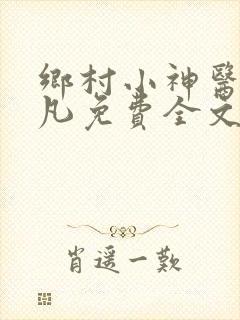 鄉村小神醫
凡免費全文
肖遥一歎